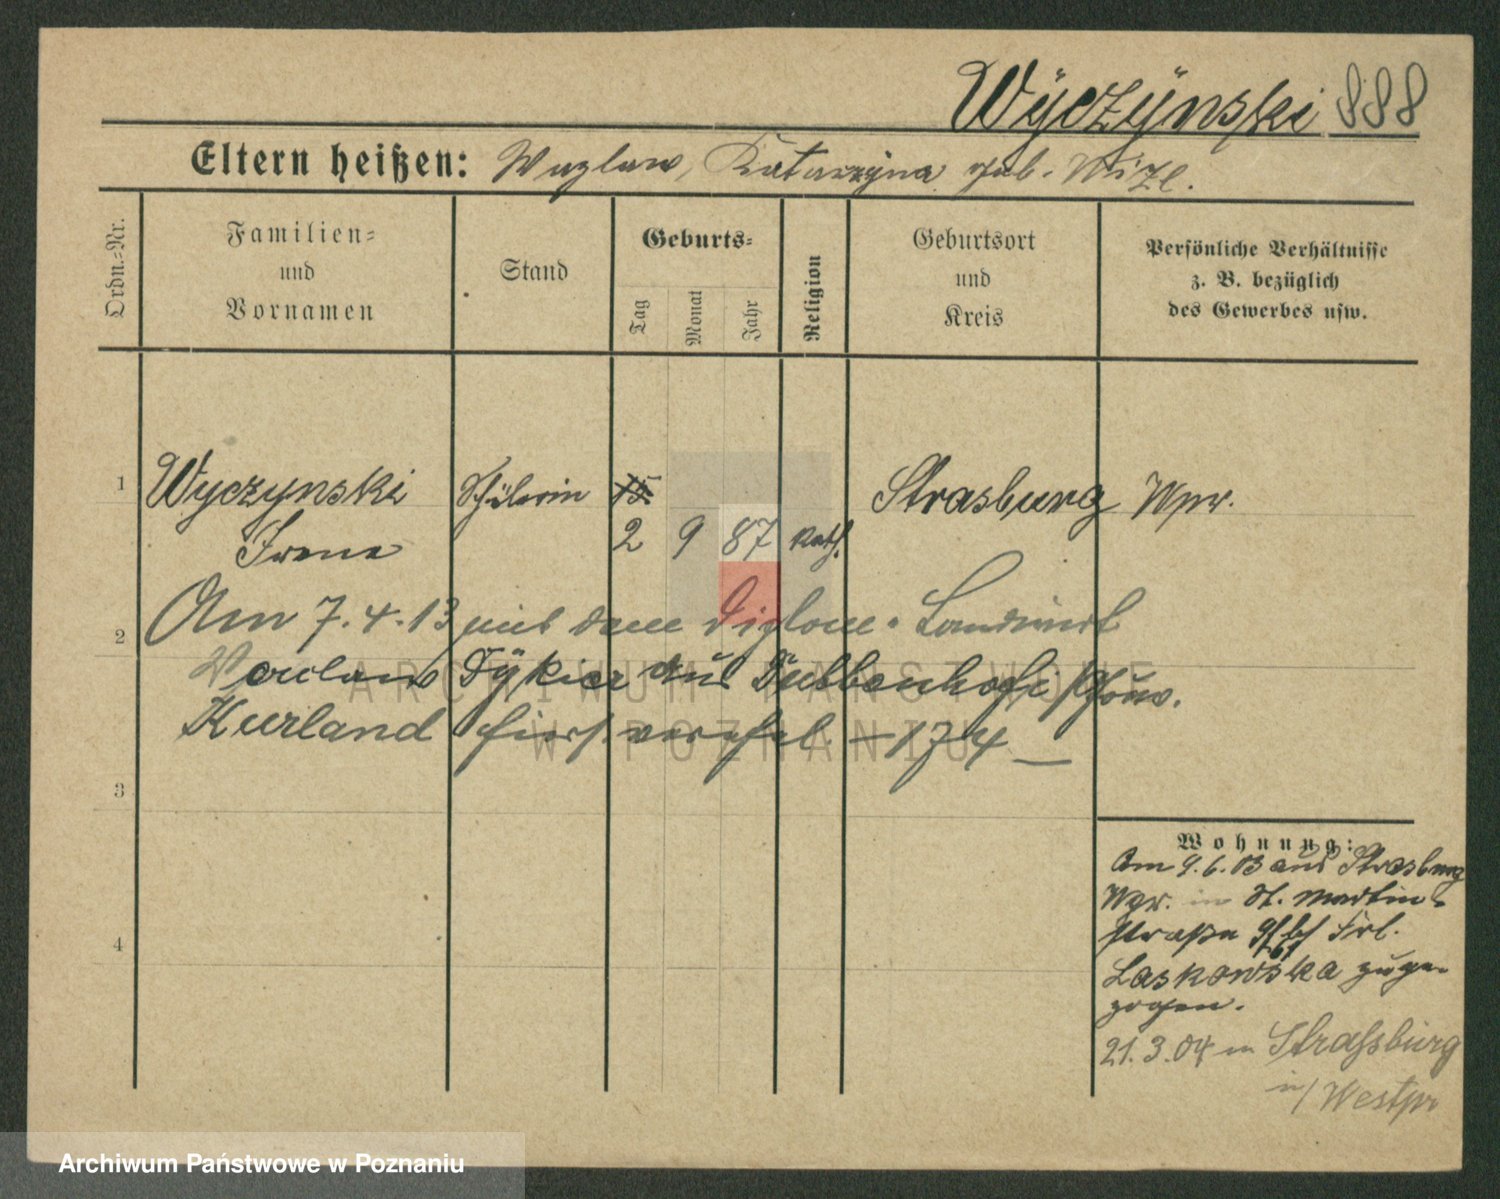 Wÿczÿnski 888
Eltern heißen: Wazlaw, Katarzyna geb. Wize.
Ordn.-Nr.
Familien-
und
Vornamen
Stand
Geburts-
Tag
Monat
Jahr
Religion
Geburtsort
und
Kreis
Persönliche Verhältnisse
z. B. bezüglich
des Gewerbes usw.
1 Wyczynski Schülerin 15 Strasburg Wpr.
Irene 2 9 87 kath.
2 Am 7.4.13 mit dem diplom. Landwirt
Waclaw aus
Kurland hier verehel. — 174 —
3
4
Wohnung:
Am 9.6.03 aus Strasburg
Wpr. in St. Martin-
straße Frl.
Laskowska zuge-
zogen.
21.3.04 n Straßburg
in/Westpr
ARCHIWUM PAŃSTWOWE
W POZNANIU
Archiwum Państwowe w Poznaniu